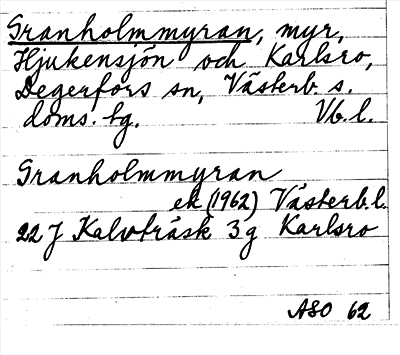 Granholmmyran, myr,
Hjukensjön och Karlsro,
Degerfors sn, Västerb. s.
doms. tg. Vb. l.
Granholmmyran
ek (1962) Västerb. l.
22 J Kalvträsk 3g Karlsro
ASO 62